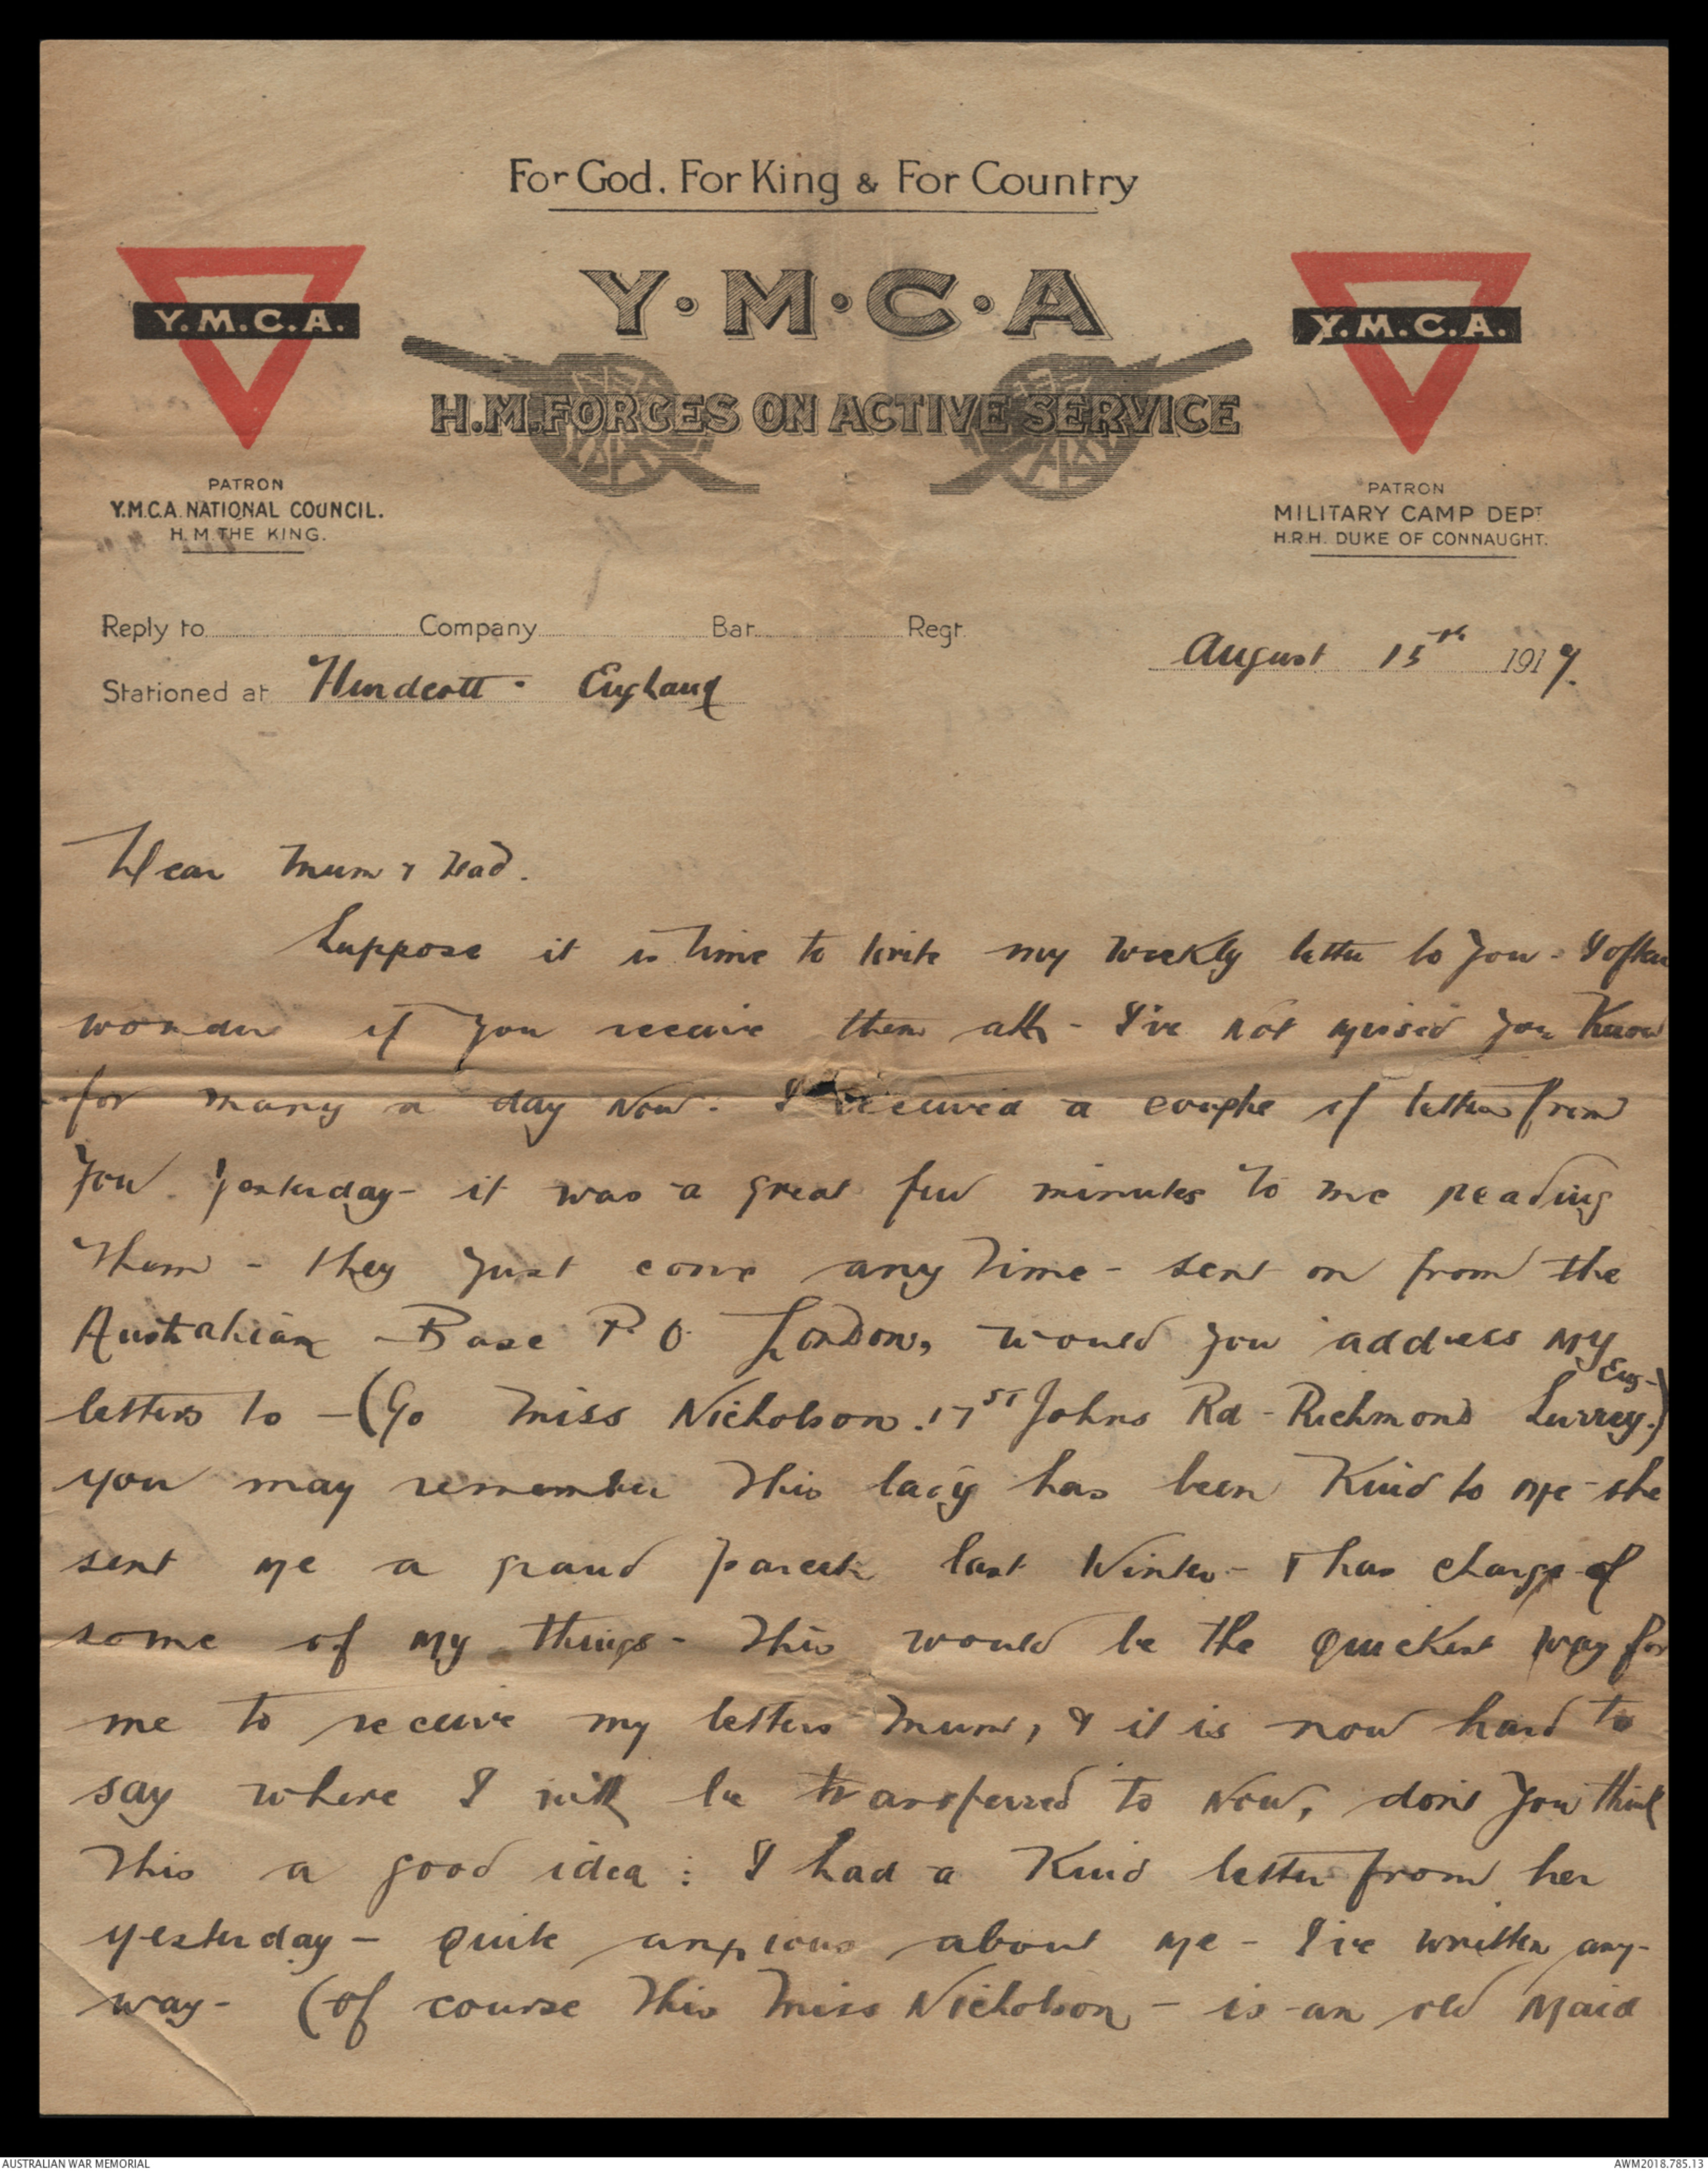 For God. For King & For Country
Y·M·C·A
H.M. FORCES ON ACTIVE SERVICE
Y.M.C.A.
PATRON
Y.M.C.A. NATIONAL COUNCIL.
H.M. THE KING.
Y.M.C.A.
PATRON
MILITARY CAMP DEPT
H.R.H. DUKE OF CONNAUGHT.
Reply to Company Bat. Regt.
August 15th 1917.
Stationed at Hurdcott. England
Dear Mum & Dad.
Suppose it is time to write my weekly letter to you - I often
wonder if you receive them all - I've not missed you know
for many a day now. I received a couple of letters from
you yesterday - it was a great few minutes to me reading
them - they just come any time - sent on from the
Australian Base P.O. London, would you address my
letters to - (C/o Miss Nicholson. 17 St Johns Rd - Richmond Surrey. Eng -)
you may remember this lady has been kind to me - she
sent me a grand parcel last Winter - & has charge of
some of my things - This would be the quickest way for
me to receive my letters Mum, & it is now hard to
say where I will be transferred to now, don't you think
this a good idea : I had a kind letter from her
yesterday - quite anxious about me - I've written any-
way - (of course this Miss Nicholson - is an old Maid
AUSTRALIAN WAR MEMORIAL
AWM2018.785.13